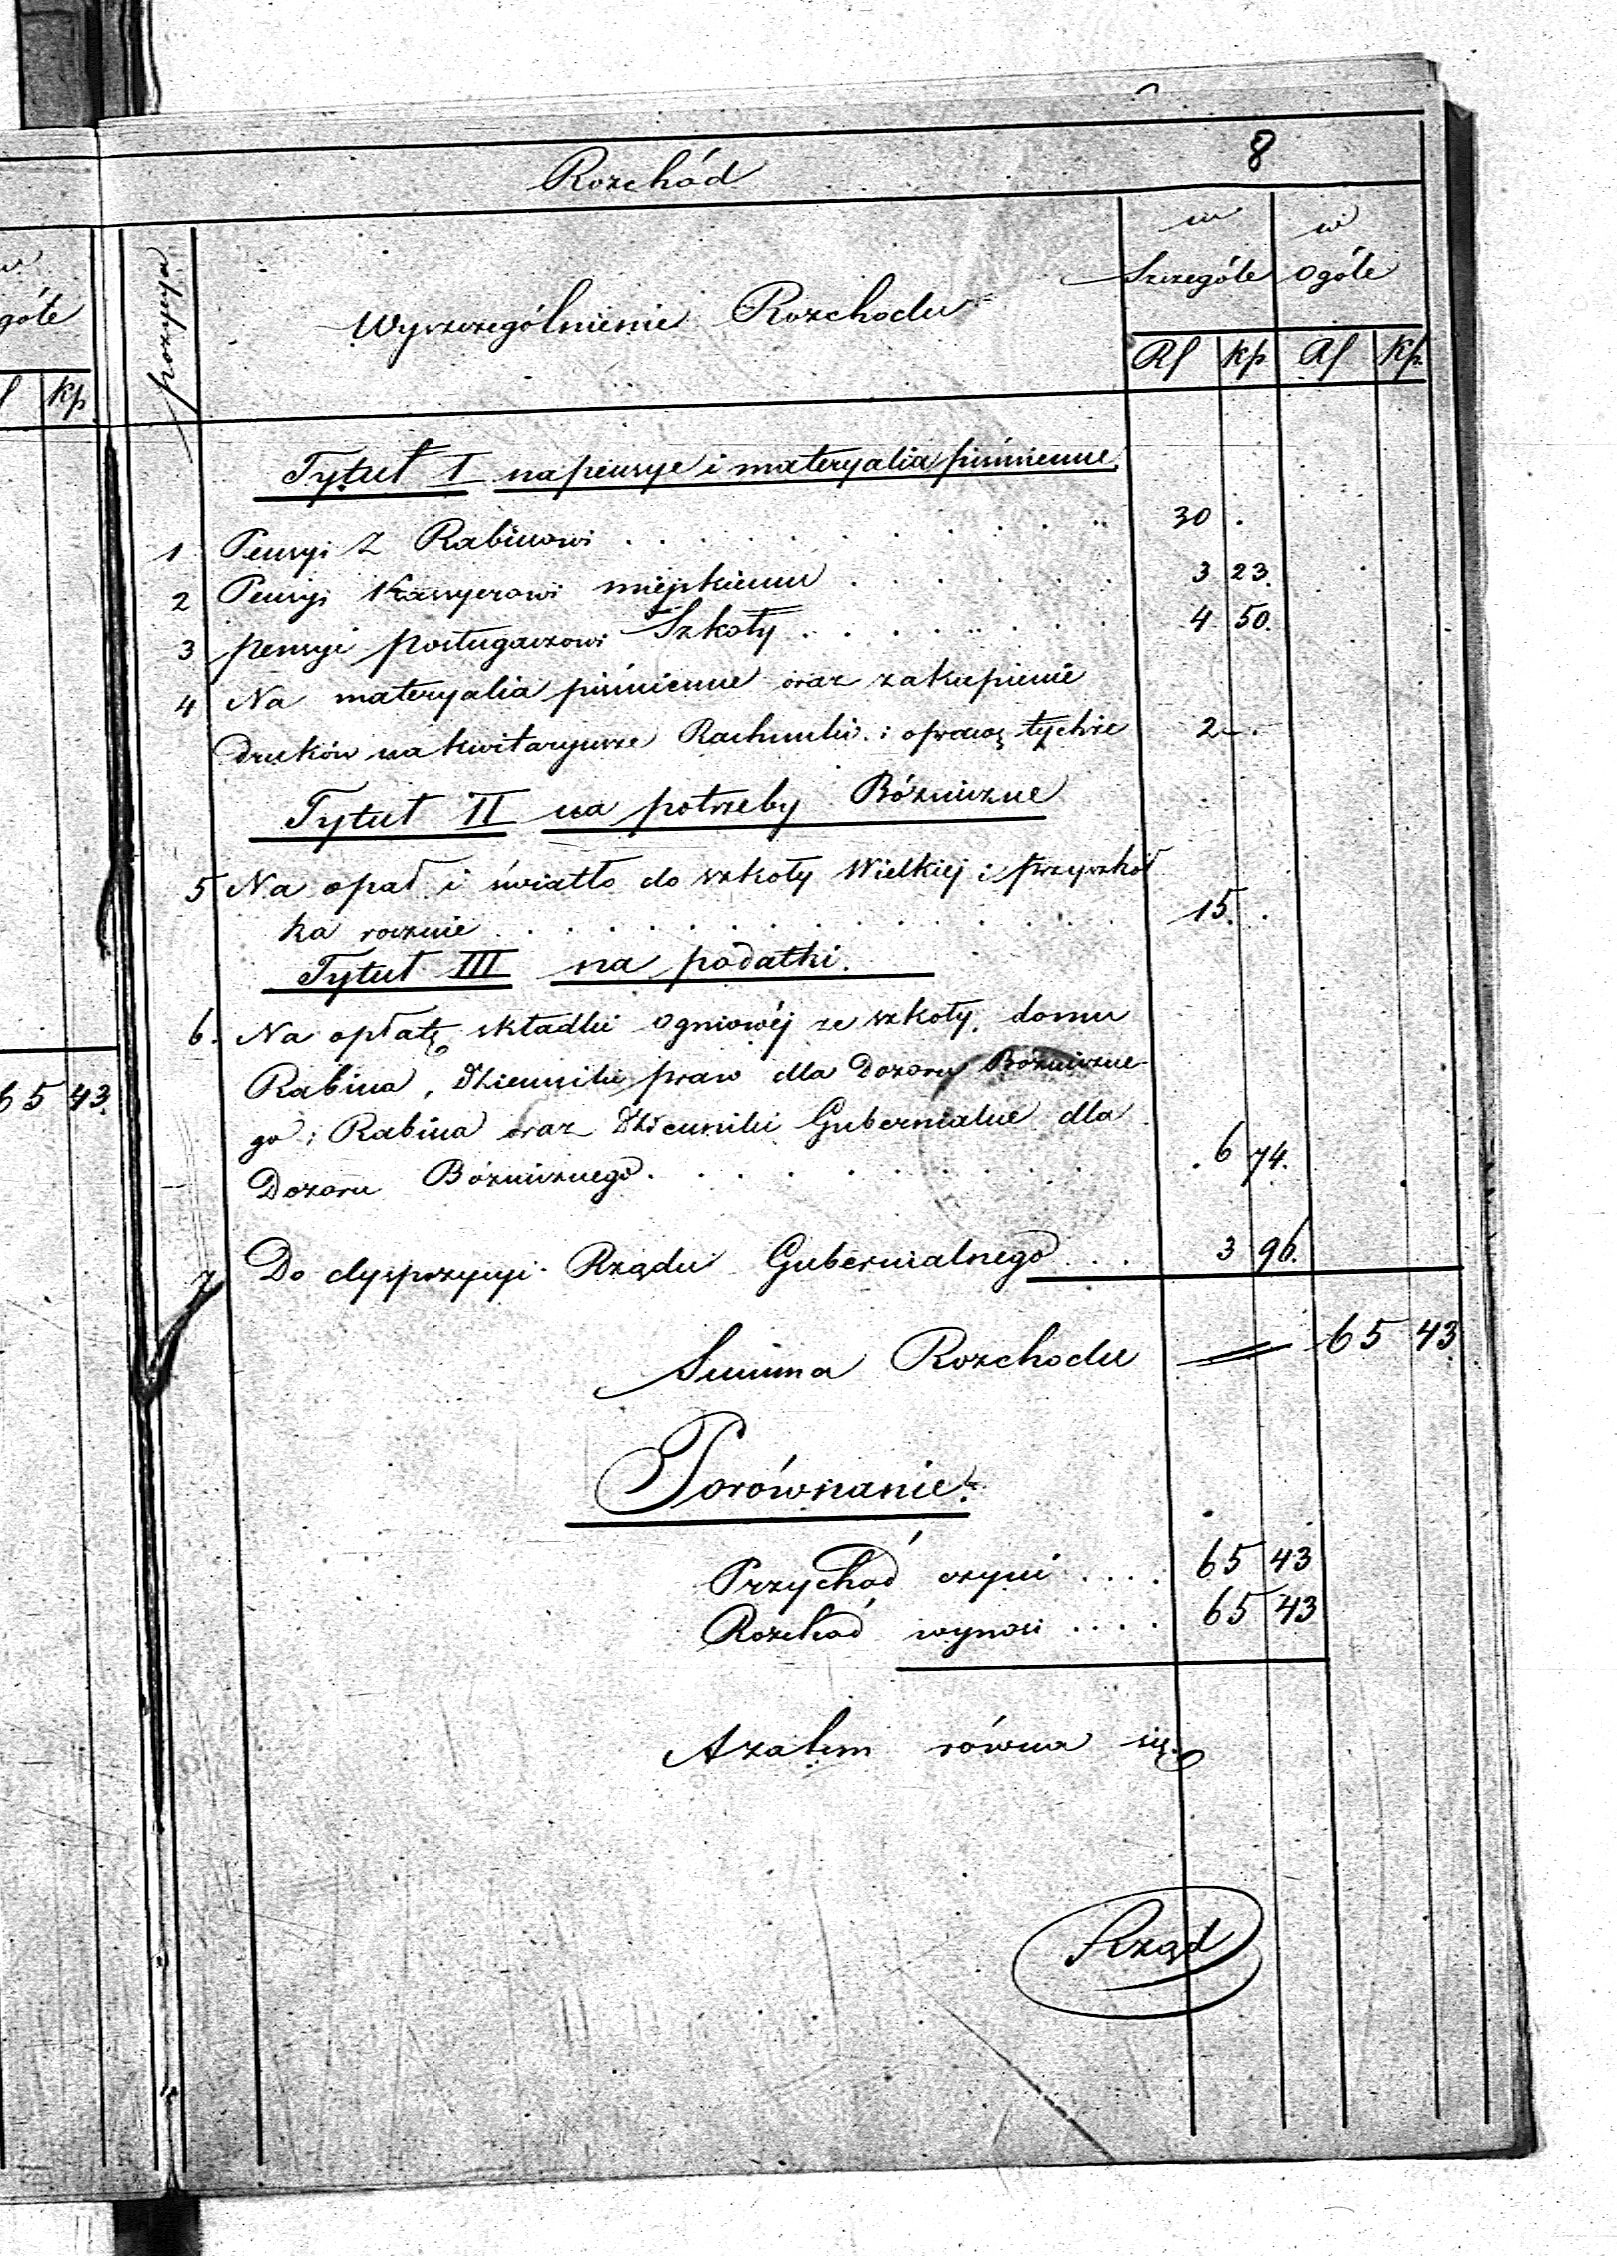 8
Rozchód
w
w
w
góle
pozycya
Wyszczególnienie Rozchodu
Szczególe
ogóle
kp
Rs
kp
Rs
kp.
Tytuł I na pensye i materyalia piśmienne.
1 Pensyi Z Rabinowi . . . . 30 .
2 Pensyi Kassyerowi miejskiemu . . . . 3 23.
3 pensyi posługaczowi Szkoły . . . . 4 50.
4 Na materyalia piśmienne oraz zakupienie
druków na kwitaryusze Rachunki i oprawę tychże 2 – .
Tytuł II na potrzeby Bóżniczne
5 Na opał i światło do szkoły Wielkiej i przyszkoł
ka rocznie . . . . 15. .
Tytuł III na podatki.
6. Na opłatę składki Ogniowéj ze szkoły, domu
Rabina, Dzienniki praw dla Dozoru Bóżniczne
go i Rabina oraz Dzienniki Gubernialne dla
Dozoru Bóżnicznego . . . . 6 74.
7 Do dyspozycyi Rządu Gubernialnego . . . 3 96.
65 43.
Summa Rozchodu 65 43
Porównanie.
Przychód czyni . . . . 65 43
Rozchód wynosi . . . . 65 43
A zatem równa się.
Rząd